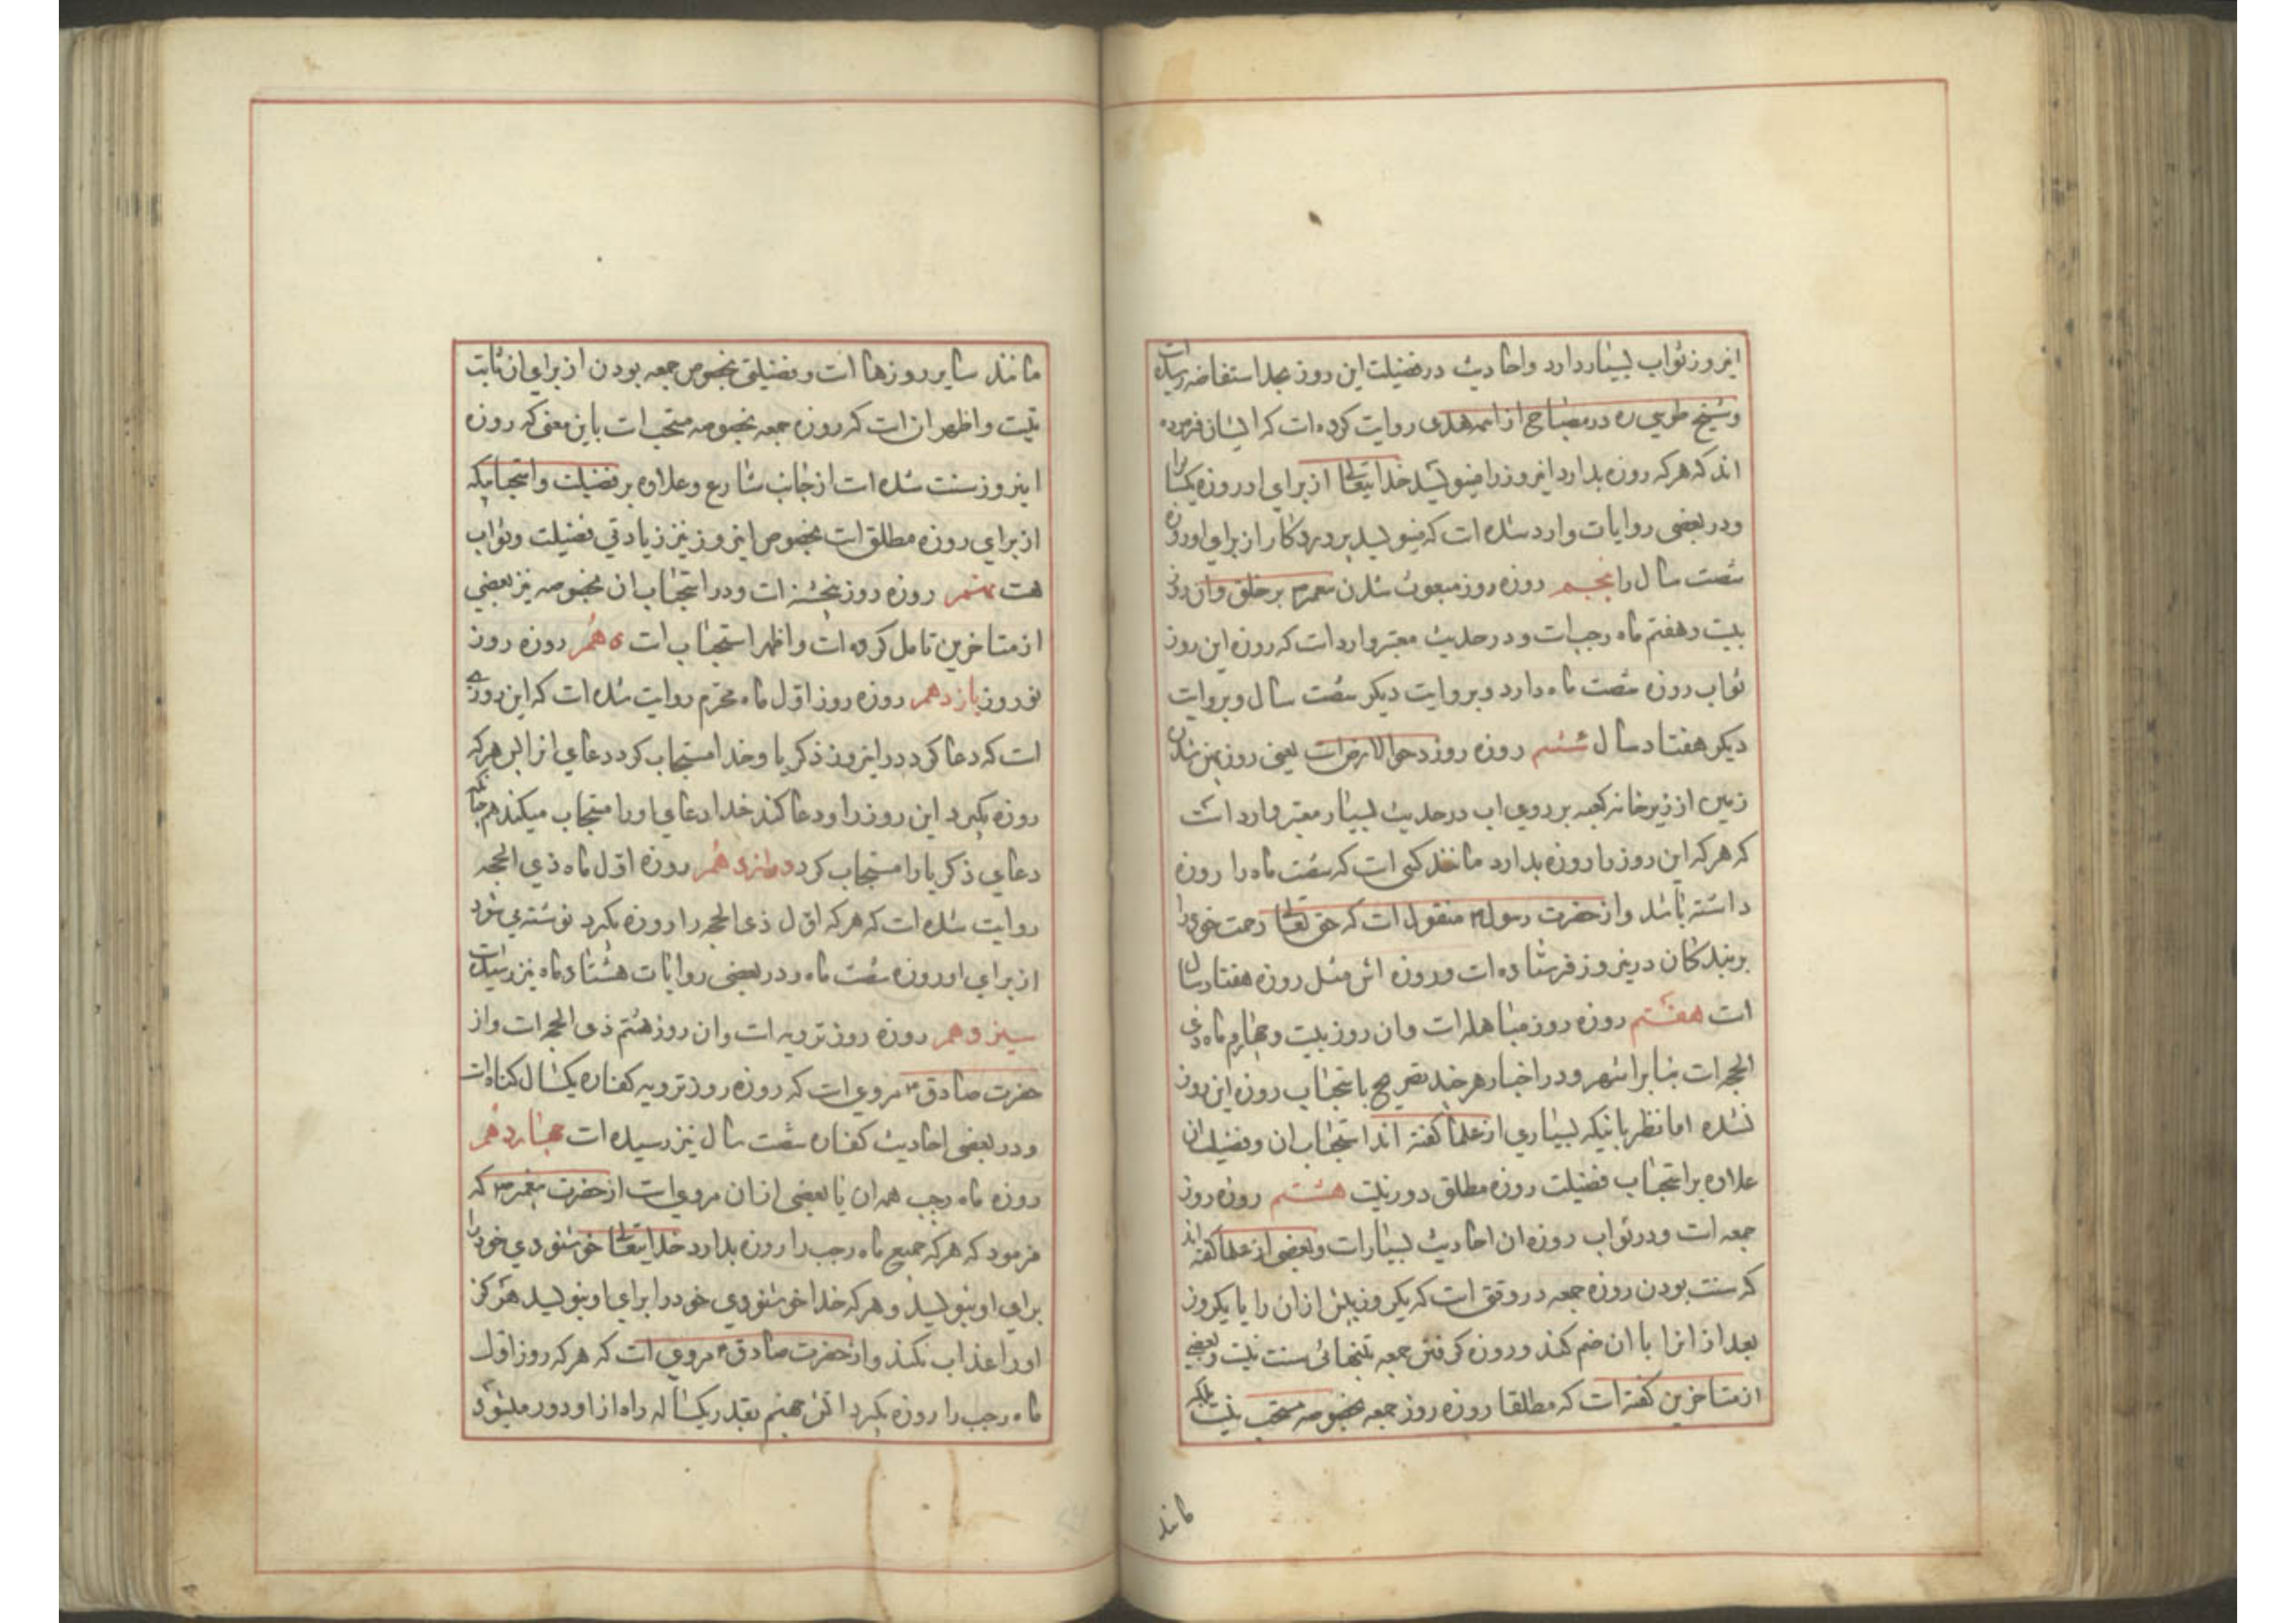 اینروز ثواب بسیار دارد و احادیث در فضیلت این روز بحد استفاضه رسیده است
و شیخ طوسی ره در مصباح از ائمه هدی روایت کرده است که ایشان فرموده
اند که هر که روزه بدارد اینروز را مینویسد خدایتعالی از برای او روزه یکسال را
و در بعضی روایات وارد شده است که مینویسد پروردکار از برای او روزه
شصت سال را پنجم روزه روز مبعوث شدن پیغمبر ص بر خلق و آن روز
بیست و هفتم ماه رجب است و در حدیث معتبر وارد است که روزه این روز
ثواب روزه شصت ماه دارد و بروایت دیکر شصت سال و بروایت
دیکر هفتاد سال ششم روزه روز دحو الارض است یعنی روز پهن شدن
زمین از زیر خانه کعبه بر روی اب در حدیث بسیار معتبر وارد است
که هر که این روز را روزه بدارد مانند کسی است که شصت ماه را روزه
داشته باشد و از حضرت رسول ص منقول است که حق تعالی رحمت خود را
بر بندکان درینروز فرستاده است و روزه اش مثل روزه هفتاد سال
است هفتم روزه روز مباهله است و ان روز بیست و چهارم ماه ذی
الحجه است بنابر اشهر و در اخبار هر چند تصریح باستحباب روزه این روز
نشده اما نظر باینکه بسیاری از علما کفته اند استحباب ان و فضیلت ان
علاوه بر استحباب فضیلت روزه مطلق دور نیست هشتم روزه روز
جمعه است و در ثواب روزه ان احادیث بسیار است و بعضی از علما کفته اند
که سنت بودن روزه جمعه در وقتی است که یکروز پیش از ان را یا یکروز
بعد از انرا با ان ضم کند و روزه کرفتن جمعه بتنهائی سنت نیست و بعضی
از متاخرین کفته است که مطلقا روزه روز جمعه بخصوصه مستحب نیست بلکه
مانند
مانند سایر روزها است و فضیلتی بخصوص جمعه بودن از برای ان ثابت
نیست و اظهر ان است که روزه جمعه بخصوصه مستحب است باین معنی که روزه
اینروز سنت شده است از جانب شارع و علاوه بر فضیلت و استحبابیکه
از برای روزه مطلق است بخصوص اینروز نیز زیادتی فضیلت و ثواب
هست نهم روزه روز پنجشنبه است و در استحباب ان بخصوصه نیز بعضی
از متاخرین تامل کرده است و اظهر استحباب است دهم روزه روز
نوروز یازدهم روزه روز اول ماه محرم روایت شده است که این روزی
است که دعا کرد در اینروز ذکریا و خدا مستجاب کرد دعای انرا پس هر که
روزه بکیرد این روز را و دعا کند خدا دعای او را مستجاب میکند همچنانکه
دعای ذکریا را مستجاب کرد دوازدهم روزه اول ماه ذی الحجه
روایت شده است که هر که اول ذی الحجه را روزه بکیرد نوشته می شود
از برای او روزه شصت ماه و در بعضی روایات هشتاد ماه نیز رسیده است
سیزدهم روزه روز ترویه است و ان روز هشتم ذی الحجه است و از
حضرت صادق ع مروی است که روزه روز ترویه کفاره یکسال کناه است
و در بعضی احادیث کفاره شصت سال نیز رسیده است چهاردهم
روزه ماه رجب همه ان یا بعضی از ان مروی است از حضرت پیغمبر ص که
فرمود که هر که جمیع ماه رجب را روزه بدارد خدایتعالی خوشنودی خود را
برای او بنویسد و هر که خدا خوشنودی خود را برای او بنویسد هرکز
او را عذاب نکند و از حضرت صادق ع مروی است که هر که روز اول
ماه رجب را روزه بکیرد اتش جهنم بقدر یکساله راه از او دور میشود